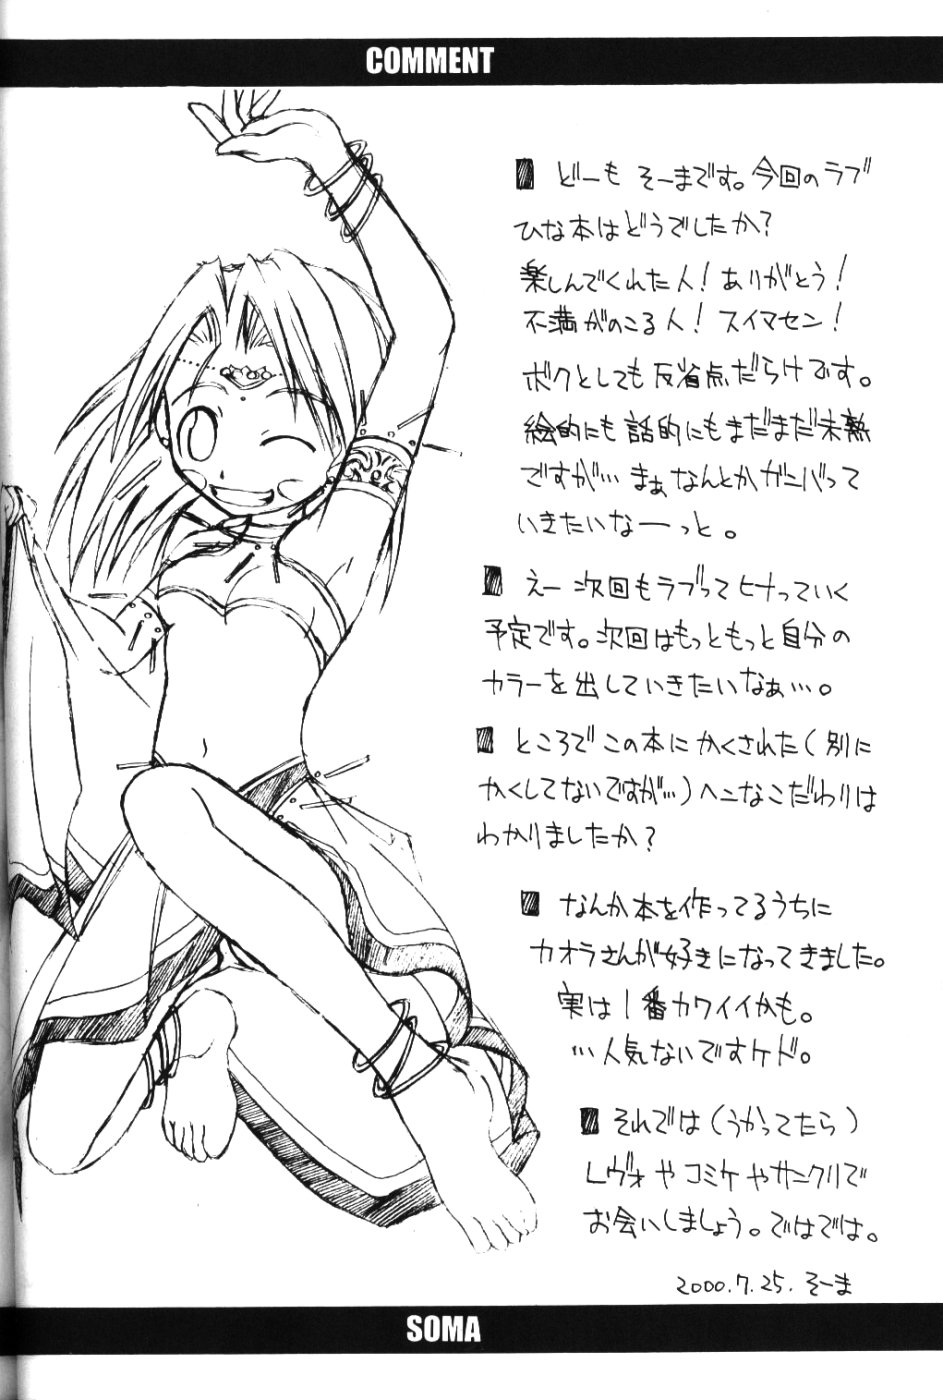 COMMENT
■ どーも そーまです。今回のラブ
ひな本はどうでしたか？
楽しんでくれた人！ありがとう！
不満がのこる人！スイマセン！
ボクとしても反省点だらけです。
絵的にも話的にもまだまだ未熟
ですが… まぁなんとかガンバって
いきたいなーっと。
■ えー 次回もラブってヒナっていく
予定です。次回はもっともっと自分の
カラーを出していきたいなぁ…。
■ ところでこの本にかくされた（別に
かくしてないですが…）ヘンなこだわりは
わかりましたか？
■ なんか本を作ってるうちに
カオラさんが好きになってきました。
実は1番カワイイかも。
…人気ないですケド。
■ それでは（うかってたら）
レヴォやコミケやサンクリで
お会いしましょう。ではでは。
2000.7.25. そーま
SOMA